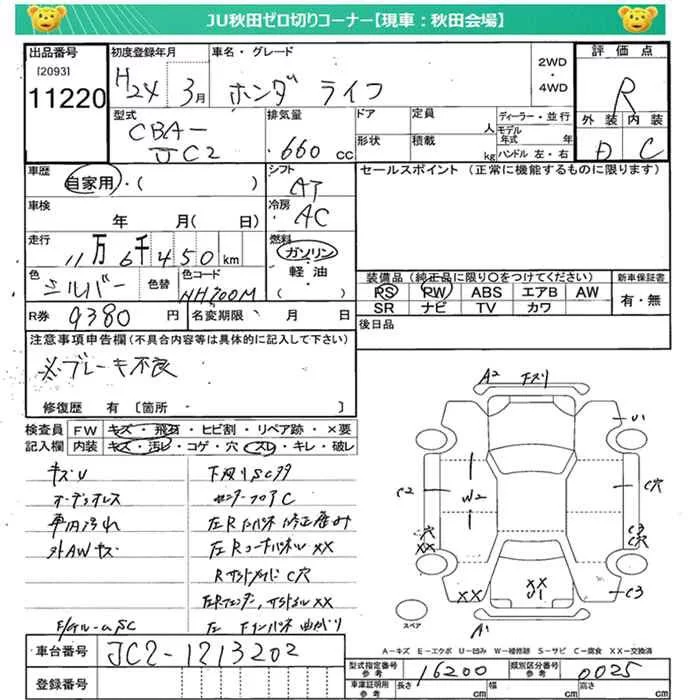 JU秋田ゼロ切りコーナー【現車：秋田会場】
出品番号
[2093]
11220
初度登録年月
H24 3月
車名・グレード
ホンダ ライフ
2WD
・
4WD
評価点
R
外装 内装
D C
型式
CBA-
JC2
排気量
660 cc
ドア
定員
人
ディーラー・並行
モデル年式 年
形状
積載
kg
ハンドル 左・右
車歴
自家用・( )
シフト
AT
セールスポイント (正常に機能するものに限ります)
車検
年 月( 日)
冷房
AC
走行
11万6千450km
燃料
ガソリン
・
軽油
・
( )
色
シルバー
色替
色コード
NH700M
装備品 (純正品に限り○をつけてください)
新車保証書
PS PW ABS エアB AW
SR ナビ TV カワ
有・無
R券 9380 円
名変期限 月 日
後日品
注意事項申告欄 (不具合内容等は具体的に記入して下さい)
※ブレーキ不良
修復歴 有 [箇所・ ]
検査員
記入欄
FW キズ・飛石・ヒビ割・リペア跡・×要
内装 キズ・汚レ・コゲ・穴・スレ・キレ・破レ
キズU
オーディオレス
車内汚れ
外AWキズ
下廻りSCサ
センターフロアC
左Rインパネ修正歴み
左RコーナーパネルXX
RサイドメイドC穴
左Rフェンダー, サイドシルXX
左Fインパネ曲がり
A2 下スリ
C2
W2
C穴
穴
XX
C3
C穴
XX
XX
U1
C3
A1
スペア
A－キズ E－エクボ U－凹み W－補修跡 S－サビ C－腐食 XX－交換済
車台番号
JC2-1213202
登録番号
型式指定番号
参考
16200
類別区分番号
参考
0025
車庫証明用
参考
長さ cm
幅 cm
高さ cm